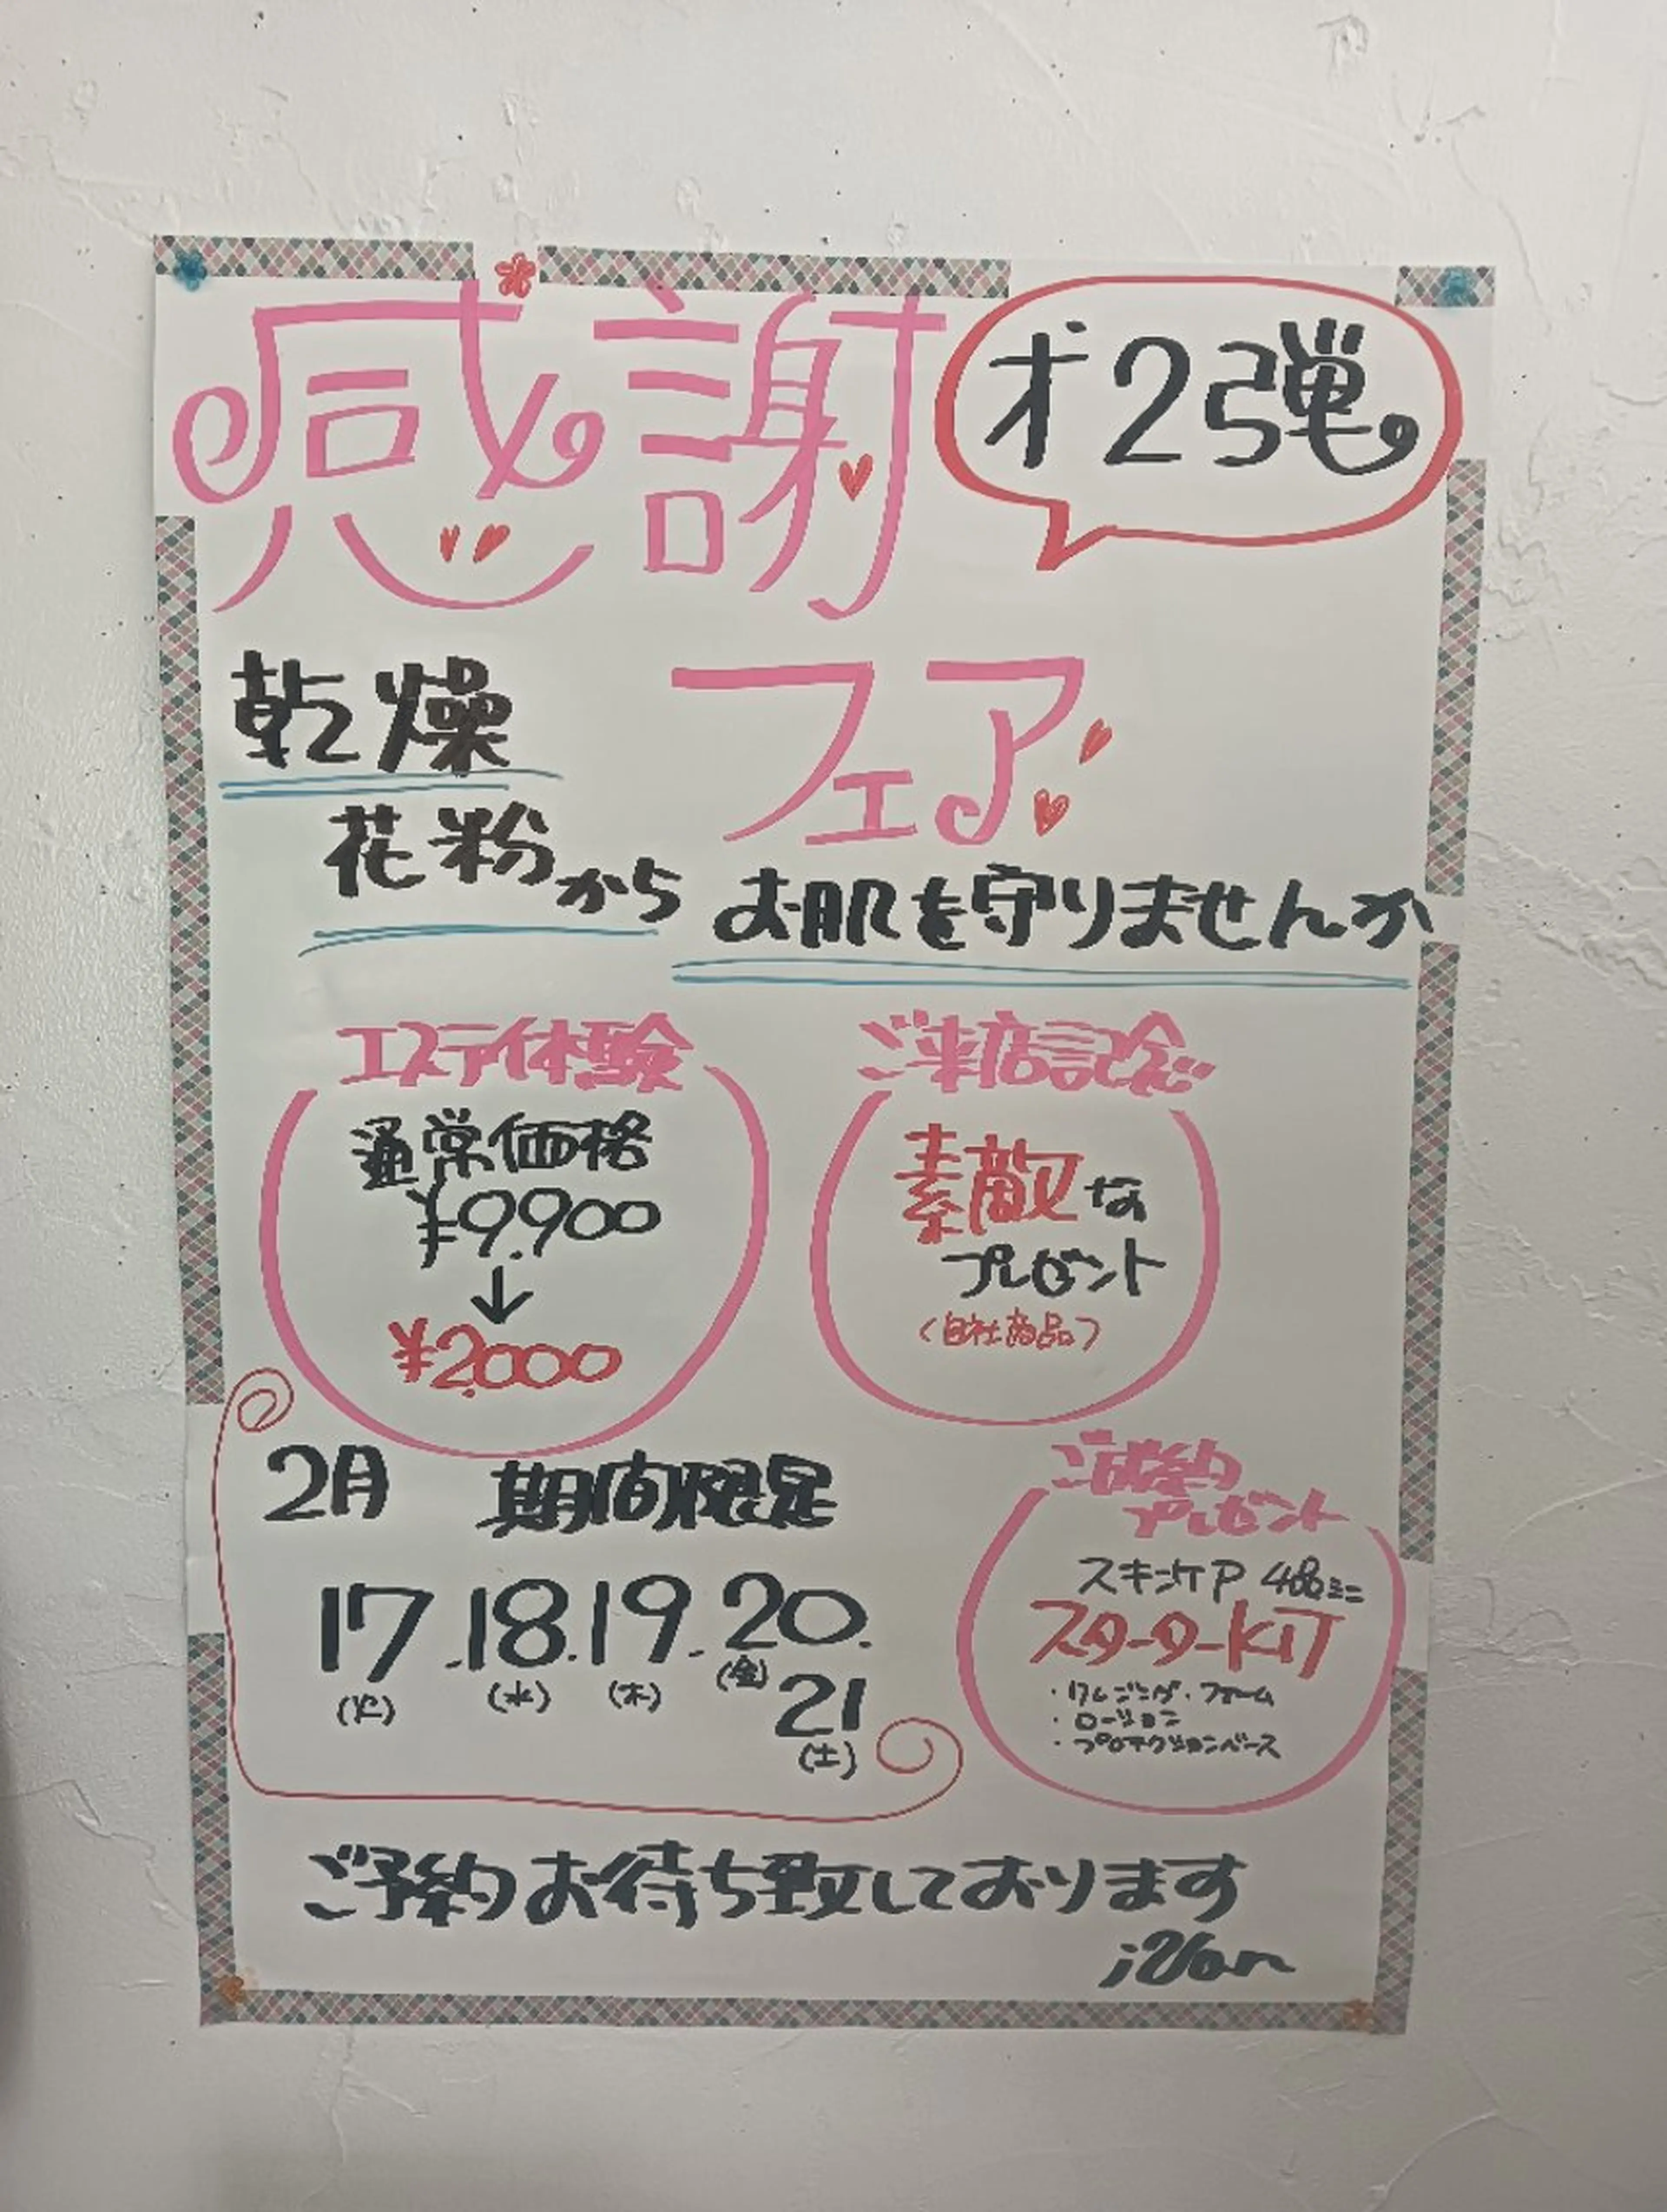 感謝
オ2弾。
フェア
乾燥
花粉から
お肌を守りませんか
エステイ体験
通常価格
¥9,900
↓
¥2,000
ご来店記念
素敵な
プレゼント
(自社商品)
2月 期間限定
17.18.19.20.
(火) (水) (木) (金)
21
(土)
ご成約
プレゼント
スキンケア
スターターKIT
・クレンジング・フォーム
・ローション
・プロテクションベース
ご予約お待ち致しております